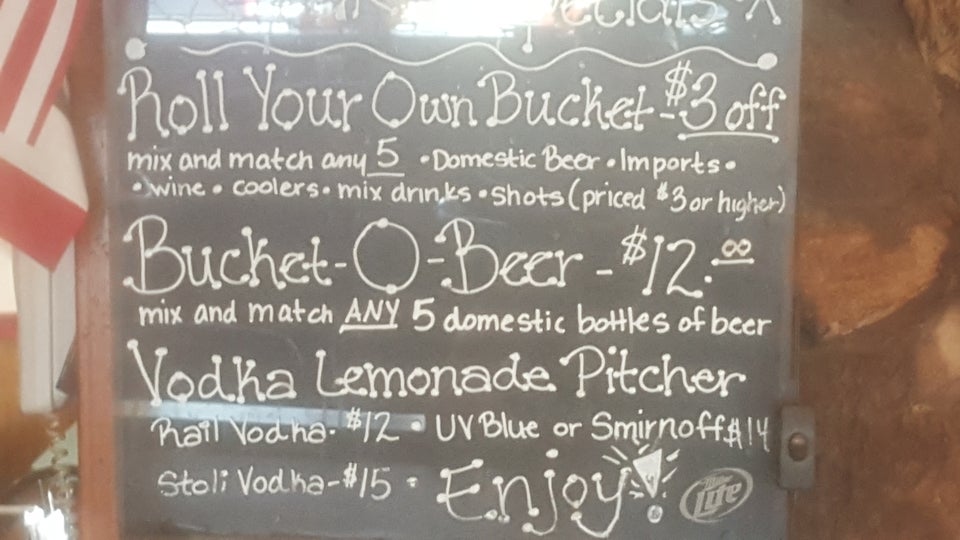 Specials
Roll Your Own Bucket - $3 off
mix and match any 5 • Domestic Beer • Imports •
• wine • coolers • mix drinks • shots (priced $3 or higher)
Bucket-O-Beer - $12.00
mix and match ANY 5 domestic bottles of beer
Vodka Lemonade Pitcher
Rail Vodka - $12 • UV Blue or Smirnoff $14
Stoli Vodka - $15 •
Enjoy!
Miller Lite